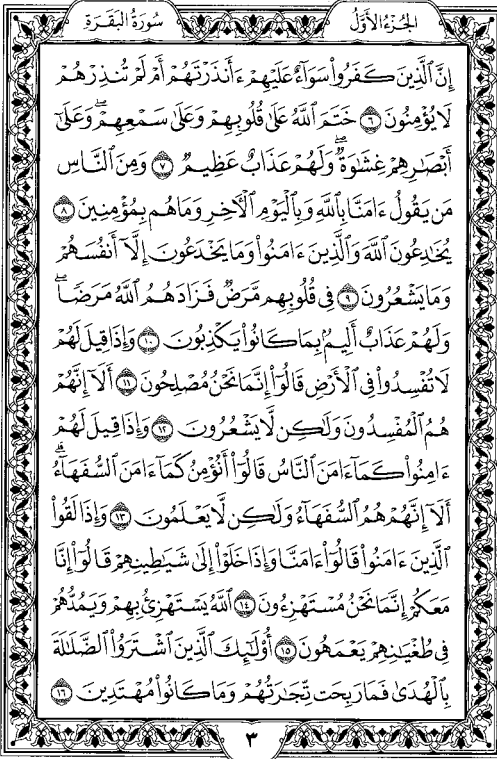 الجُزْءُ الأَوَّلُ سُورَةُ البَقَرَةِ
إِنَّ ٱلَّذِينَ كَفَرُوا۟ سَوَآءٌ عَلَيْهِمْ ءَأَنذَرْتَهُمْ أَمْ لَمْ تُنذِرْهُمْ
لَا يُؤْمِنُونَ ٦ خَتَمَ ٱللَّهُ عَلَىٰ قُلُوبِهِمْ وَعَلَىٰ سَمْعِهِمْ ۖ وَعَلَىٰٓ
أَبْصَـٰرِهِمْ غِشَـٰوَةٌ ۖ وَلَهُمْ عَذَابٌ عَظِيمٌ ٧ وَمِنَ ٱلنَّاسِ
مَن يَقُولُ ءَامَنَّا بِٱللَّهِ وَبِٱلْيَوْمِ ٱلْـَٔاخِرِ وَمَا هُم بِمُؤْمِنِينَ ٨
يُخَـٰدِعُونَ ٱللَّهَ وَٱلَّذِينَ ءَامَنُوا۟ وَمَا يَخْدَعُونَ إِلَّآ أَنفُسَهُمْ
وَمَا يَشْعُرُونَ ٩ فِى قُلُوبِهِم مَّرَضٌ فَزَادَهُمُ ٱللَّهُ مَرَضًا ۖ
وَلَهُمْ عَذَابٌ أَلِيمٌۢ بِمَا كَانُوا۟ يَكْذِبُونَ ١٠ وَإِذَا قِيلَ لَهُمْ
لَا تُفْسِدُوا۟ فِى ٱلْأَرْضِ قَالُوٓا۟ إِنَّمَا نَحْنُ مُصْلِحُونَ ١١ أَلَآ إِنَّهُمْ
هُمُ ٱلْمُفْسِدُونَ وَلَـٰكِن لَّا يَشْعُرُونَ ١٢ وَإِذَا قِيلَ لَهُمْ
ءَامِنُوا۟ كَمَآ ءَامَنَ ٱلنَّاسُ قَالُوٓا۟ أَنُؤْمِنُ كَمَآ ءَامَنَ ٱلسُّفَهَآءُ ۗ
أَلَآ إِنَّهُمْ هُمُ ٱلسُّفَهَآءُ وَلَـٰكِن لَّا يَعْلَمُونَ ١٣ وَإِذَا لَقُوا۟
ٱلَّذِينَ ءَامَنُوا۟ قَالُوٓا۟ ءَامَنَّا وَإِذَا خَلَوْا۟ إِلَىٰ شَيَـٰطِينِهِمْ قَالُوٓا۟ إِنَّا
مَعَكُمْ إِنَّمَا نَحْنُ مُسْتَهْزِءُونَ ١٤ ٱللَّهُ يَسْتَهْزِئُ بِهِمْ وَيَمُدُّهُمْ
فِى طُغْيَـٰنِهِمْ يَعْمَهُونَ ١٥ أُو۟لَـٰٓئِكَ ٱلَّذِينَ ٱشْتَرَوُا۟ ٱلضَّلَـٰلَةَ
بِٱلْهُدَىٰ فَمَا رَبِحَت تِّجَـٰرَتُهُمْ وَمَا كَانُوا۟ مُهْتَدِينَ ١٦
٣